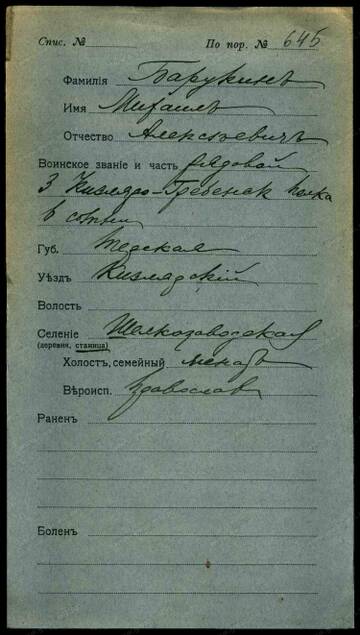 Спис. № По пор. № 645
Фамилія Барукинъ
Имя Михаилъ
Отчество Алексѣевичъ
Воинское званіе и часть рядовой
3 Кизляро-Гребенск полка
6 сотни
Губ. Терская
Уѣздъ Кизлярскій
Волость
Селеніе Шелкозаводская
(деревня, станица)
Холостъ, семейный женатъ
Вѣроисп. Православ
Раненъ
Боленъ